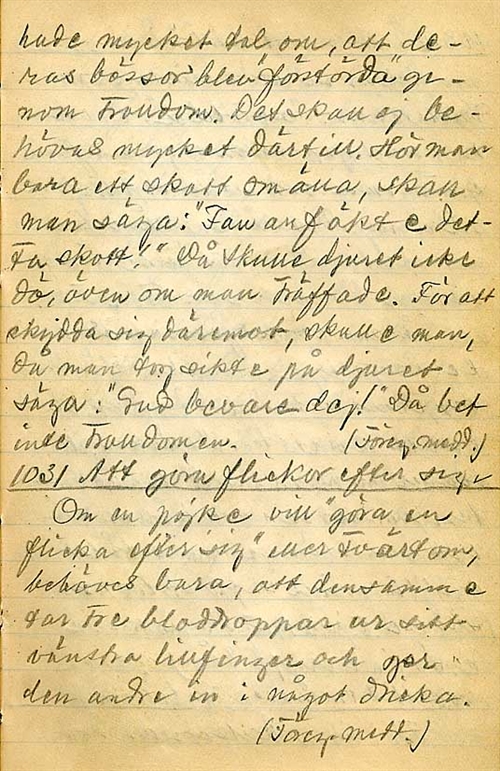 hade mycket tal om, att de-
ras bössor blev "förstörda" ge-
nom trolldom. Det skall ej be-
hövas mycket därtill. Hör man
bara ett skott smälla, skall
man säga: "Fan anfäkte det-
ta skott!" Då skulle djuret icke
dö, även om man träffade. För att
skydda sig däremot, skulle man,
då man tog sikte på djuret
säga: "Gud bevare dej!" Då bet
inte trolldomen. (Föreg. medd.)
1031 Att göra flickor efter sig.
Om en pojke vill "göra en
flicka efter sig" eller tvärtom,
behöves bara, att densamme
tar tre bloddroppar ur sitt
vänstra lillfinger och ger
den andre in i något dricka.
(Föreg. medd.)